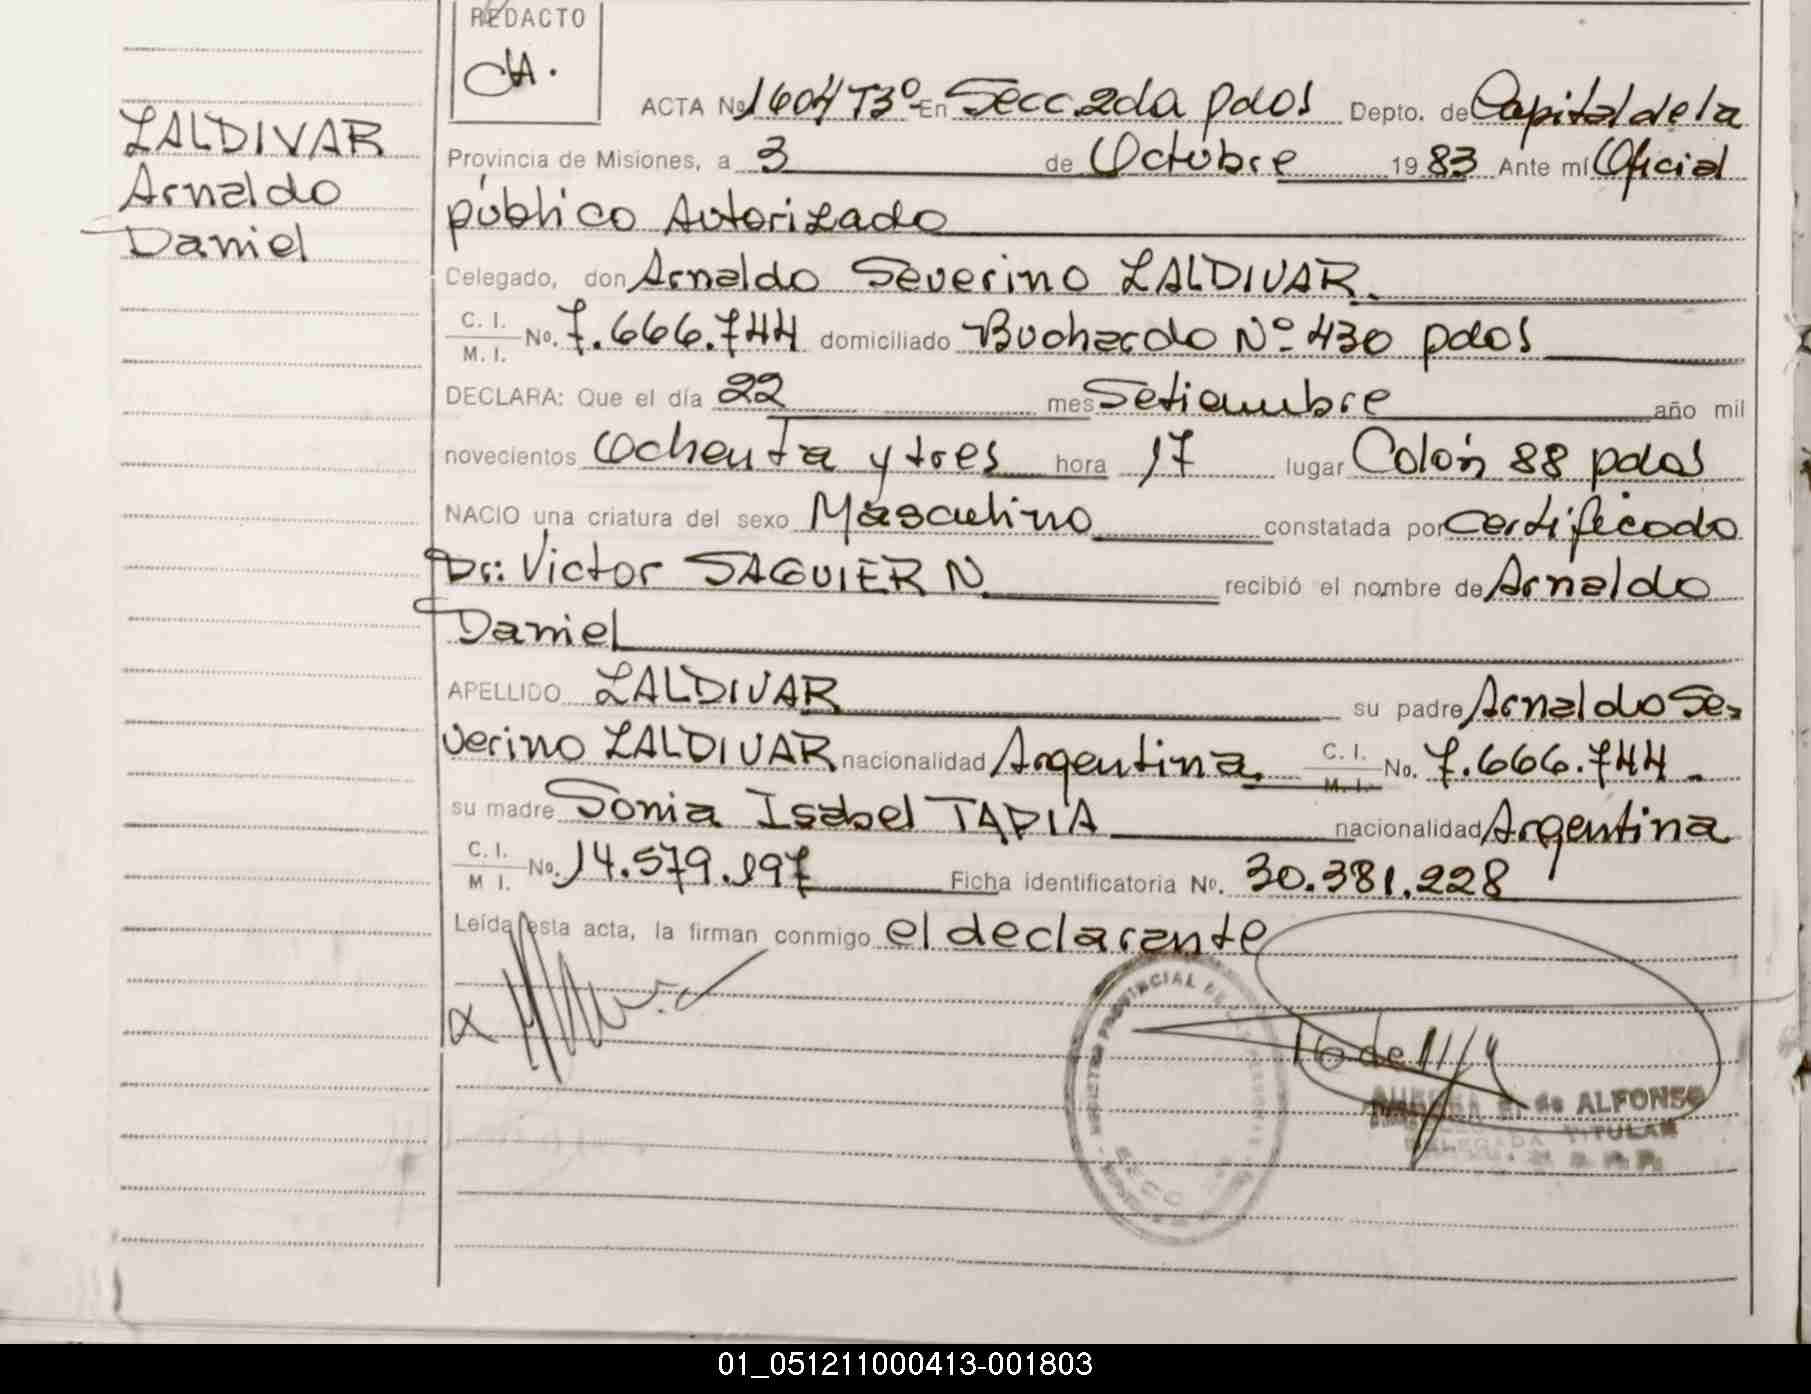 REDACTO
CH.
ZALDIVAR
Arnaldo
Daniel
ACTA No 1604 T3º En Secc 2da pdas Depto. de Capital de la
Provincia de Misiones, a 3 de Octubre 1983 Ante mí Oficial
público Autorizado
Celegado, don Arnaldo Severino ZALDIVAR.
C. I.
M. I. No. 7.666.744 domiciliado Buchardo Nº 430 pdas
DECLARA: Que el día 22 mes Setiembre año mil
novecientos Ochenta y tres hora 17 lugar Colón 88 pdas
NACIO una criatura del sexo Masculino constatada por certificado
Dr: Victor SAGUIER N recibió el nombre de Arnaldo
Daniel
APELLIDO ZALDIVAR su padre Arnaldo Se-
verino ZALDIVAR nacionalidad Argentina. C. I.
M. I. No. 7.666.744
su madre Sonia Isabel TAPIA nacionalidad Argentina
C. I.
M I. No. 14.579.197 Ficha identificatoria No. 30.381.228
Leída esta acta, la firman conmigo el declarante
REGISTRO PROVINCIAL DE
de ALFONSO
DELEGADA TITULAR
01_051211000413-001803